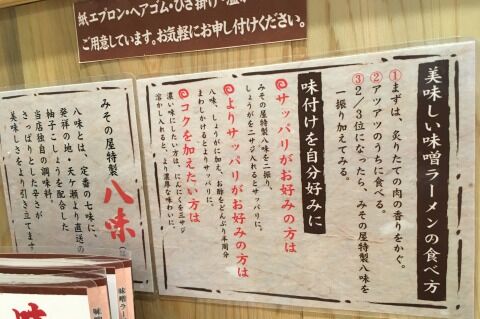 紙エプロン・ヘアゴム・ひざ掛け・
ご用意しています。お気軽にお申し付けください。
美味しい味噌ラーメンの食べ方
①まずは、炙りたての肉の香りをかぐ。
②アツアツのうちに食べる。
③2/3位になったら、みその屋特製八味を
一振り加えてみる。
味付けを自分好みに
サッパリがお好みの方は
みその屋特製八味を二振り、
しょうがを二サジ入れるとサッパリに。
よりサッパリがお好みの方は
八味、しょうがに加え、お酢をどんぶり半周分
まわしかけるとよりサッパリに。
コクを加えたい方は
濃い味にしたい方は、にんにくを三サジ
溶かし入れると、より濃厚な味わいに。
みその屋特製
八味
八味とは、定番の七味に、
発祥の地、天ケ瀬より直送の
柚子こしょうを配合した
当店独自の調味料。
ピリッとした辛さが
美味しさをより引き立てます
味噌ラー
味噌ラーメン